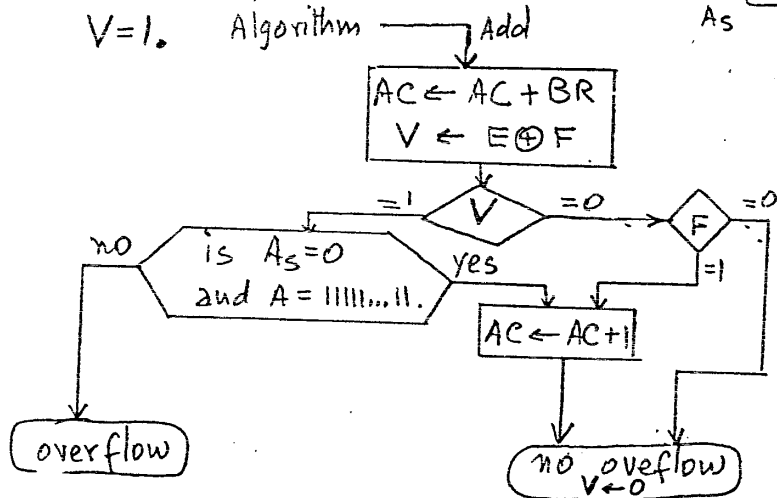 V=1. Algorithm Add As
AC ← AC + BR
V ← E ⊕ F
=1 V =0 F =0
no is As=0 yes =1
and A = 11111...11.
AC ← AC+1
overflow no oveflow
V←0